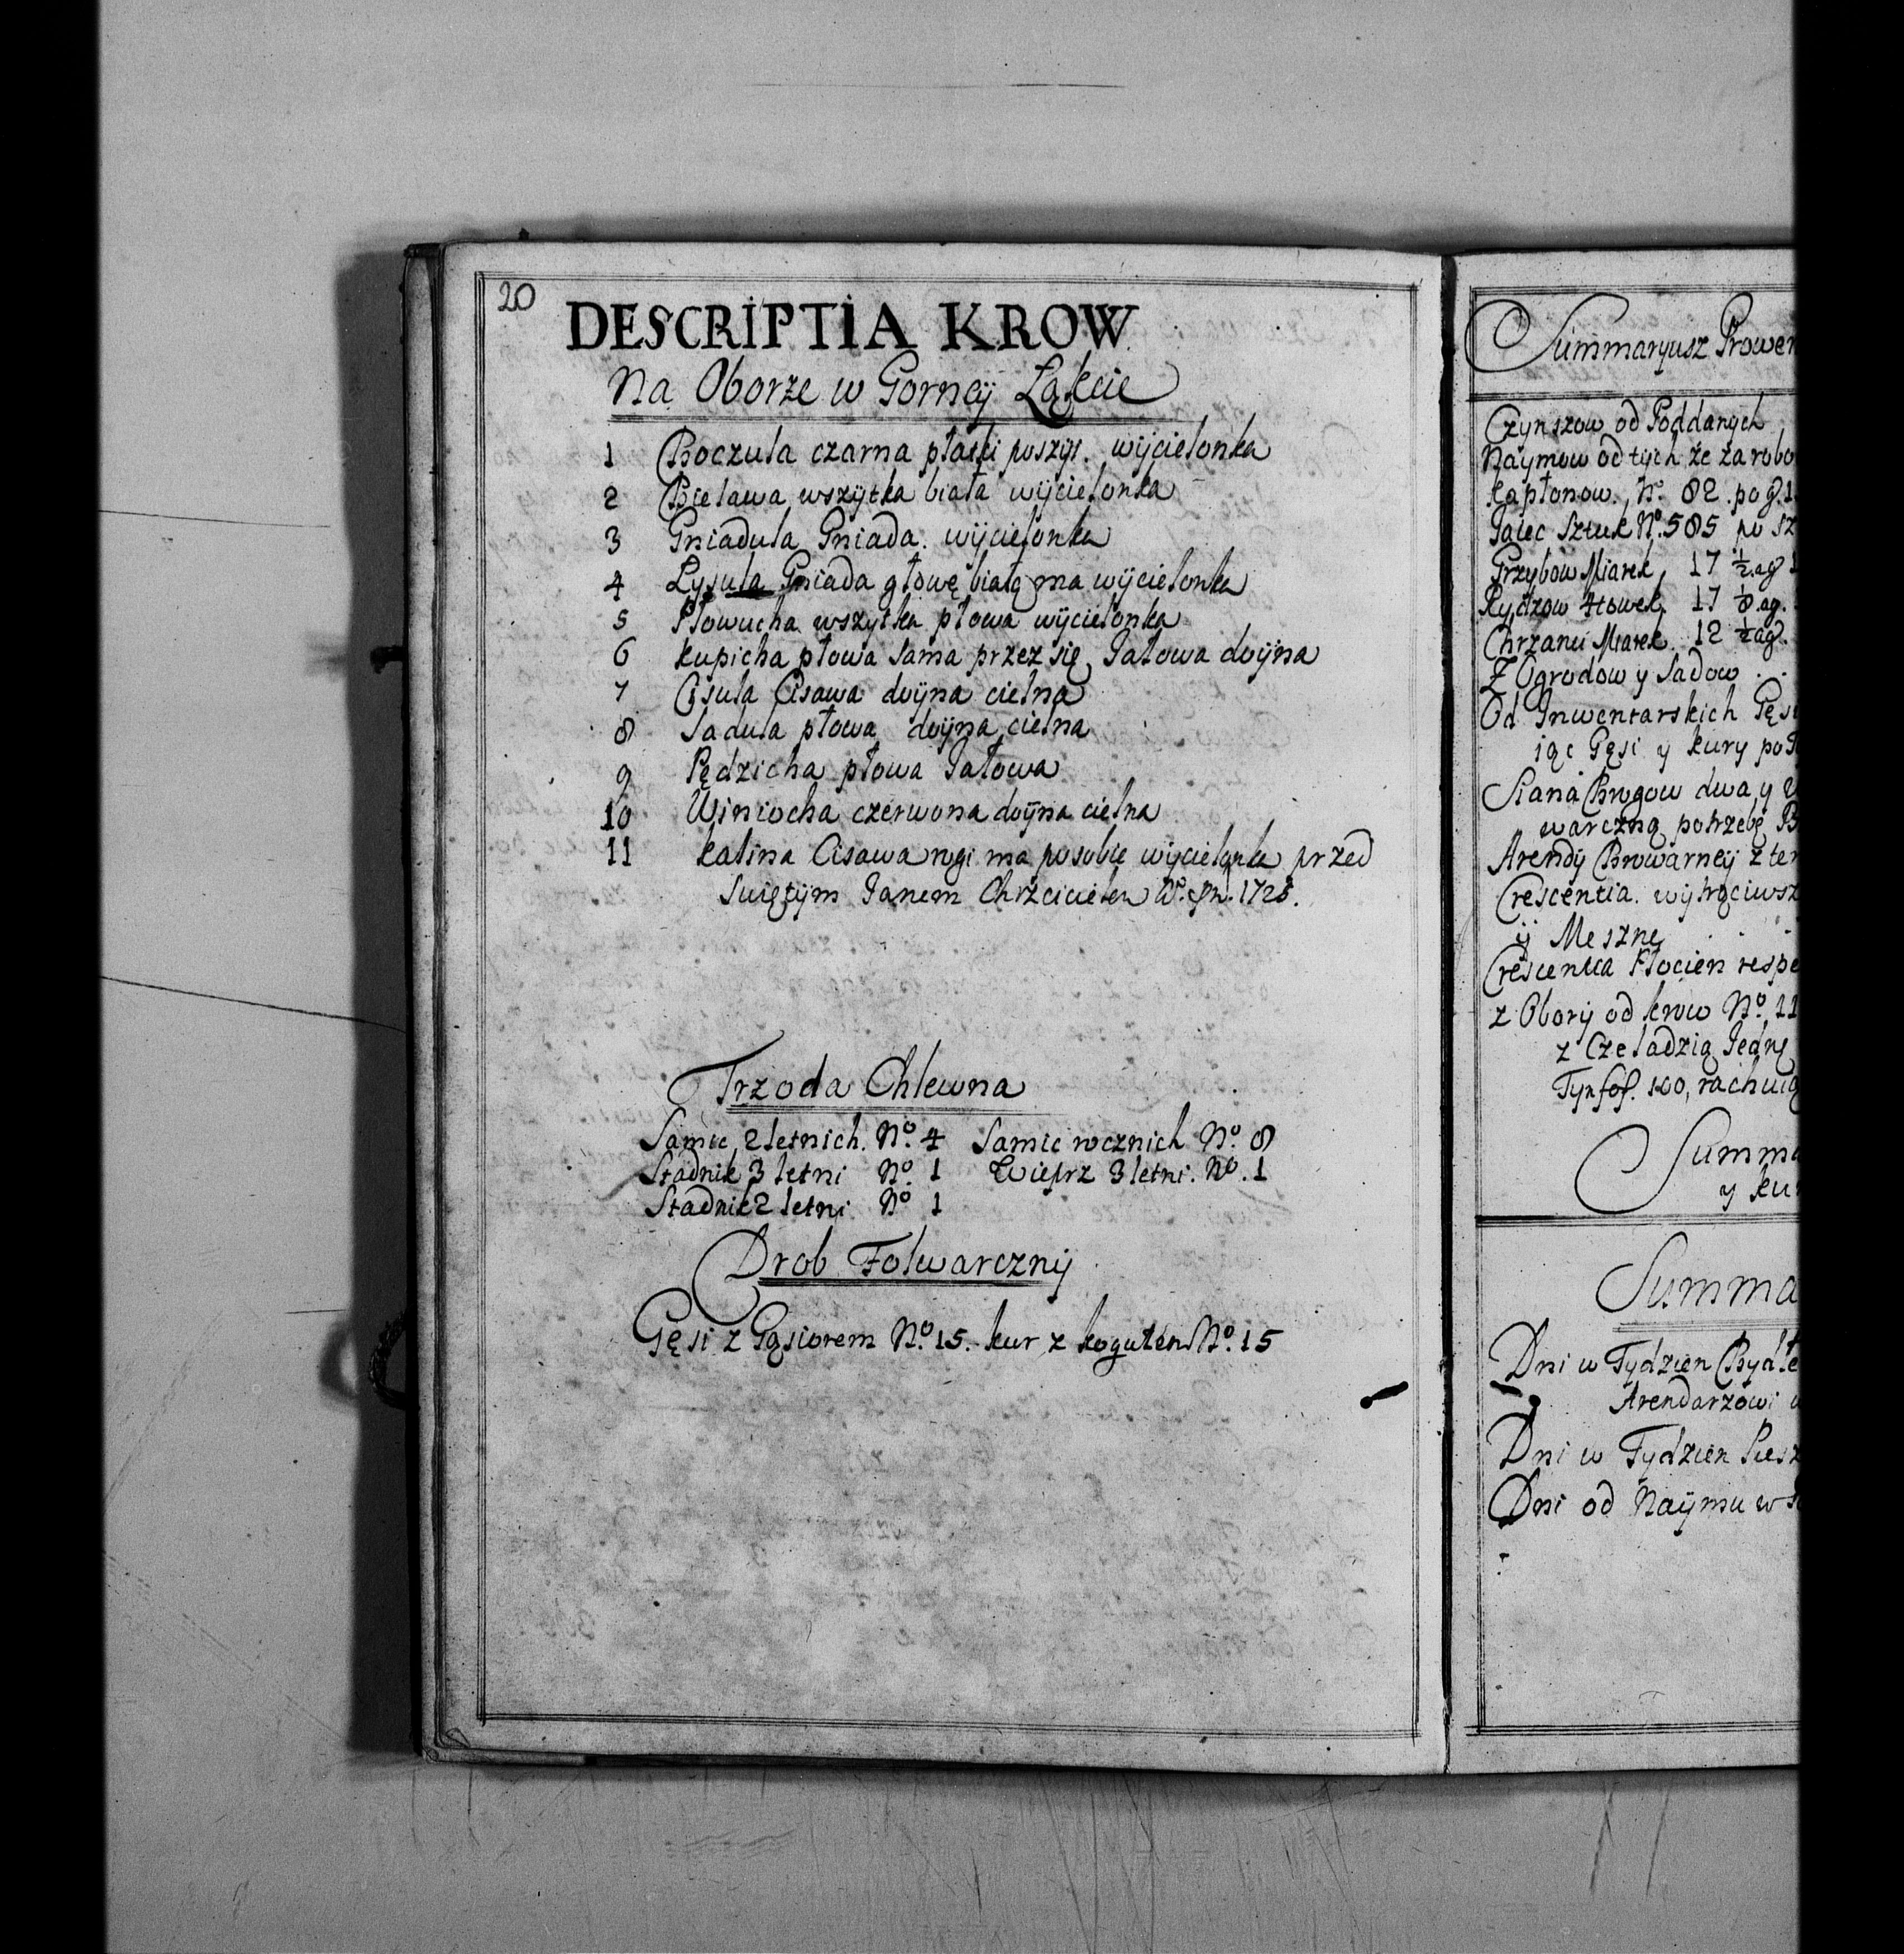 20
DESCRIPTIA KROW
Na Oborze w Gorney Łąkcie
1 Boczula czarna płaski poszyi. wÿcielonka
2 Bielawa wszytka biała wÿcielonka
3 Gniadula Gniada. wÿcielonka
4 Łysula Gniada głowę białą ma wÿcielonka
5 Płowucha wszytka płowa wÿcielonka
6 Kupicha płowa sama przez się, Jałowa doÿna
7 Cisula Cisawa doÿna cielna
8 Sadula płowa doÿna cielna
9 Pędzicha płowa Jałowa
10 Winiocha czerwona doÿna cielna
11 Kalina Cisawa rogi ma posobie wÿcielonka przed
Swiętÿm Janem Chrzcicielem 1725.
Trzoda Chlewna
Samic 2 letnich. No. 4 Samic rocznich No. 8
Stadnik 3 letni No. 1 Wieprz 3 letni. No. 1
Stadnik 2 letni No 1
Drob Folwarcznÿ
Gęsi z Gąsiorem No. 15. kur z kogutem No. 15
Summaryusz Prowen
Czynszow od Poddanych
Naymow od tych że za robo
Kapłonow. No. 82. po g. 1
Jaiec Sztuk No. 585 po sz
Grzybow Miarek 17 ½ ag
Rydzow 17 ag.
Chrzanu Miarek 12 ½ ag.
Z Ogrodow y Sadow
Od Inwentarskich Gęsi
iąc Gęsi y kury po
Siana Brogow dwa y
warczną potrzebę B
Arendÿ Browarneÿ z te
Crescentia. wÿtrąciwsz
ÿ Meszne
Crescentia Płocien respe
z Oborÿ od krow No. 11
z Czeladzią Jedną
Tynfof. 100, rachuią
Summa
y ku
Summa
Dni w Tydzien Bydłe
Arendarzowi
Dni w Tydzien Piesz
Dni od Naÿmu w